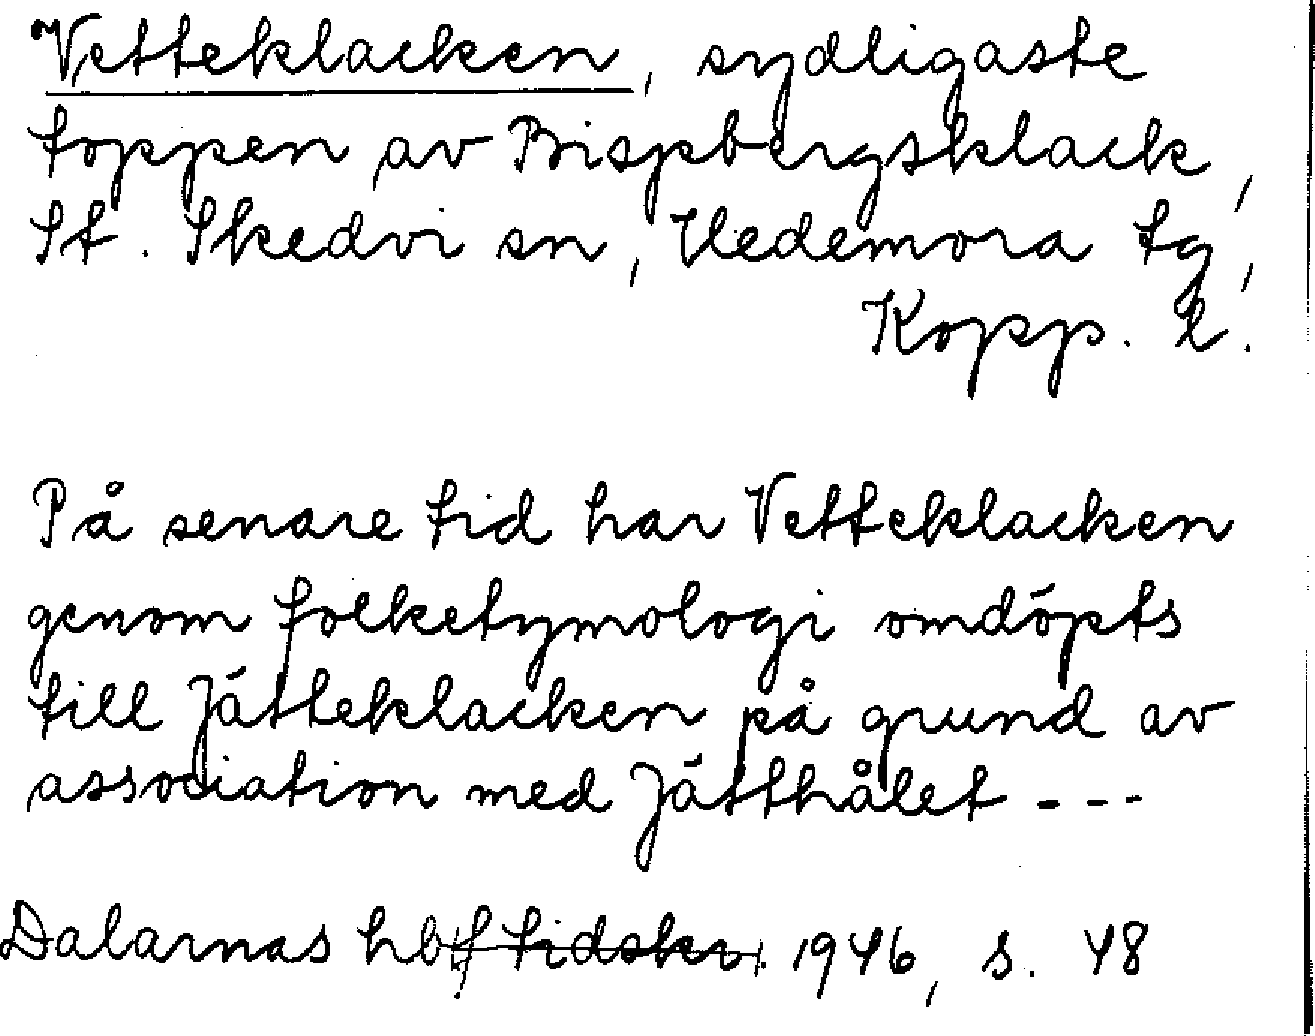 Vetteklacken, sydligaste
toppen av Bispbergsklack,
St. Skedvi sn, Hedemora tg,
Kopp. l.
På senare tid har Vetteklacken
genom folketymologi omdöpts
till Jätteklacken på grund av
association med Jätthålet ---
Dalarnas hbf tidskr. 1946, s. 48